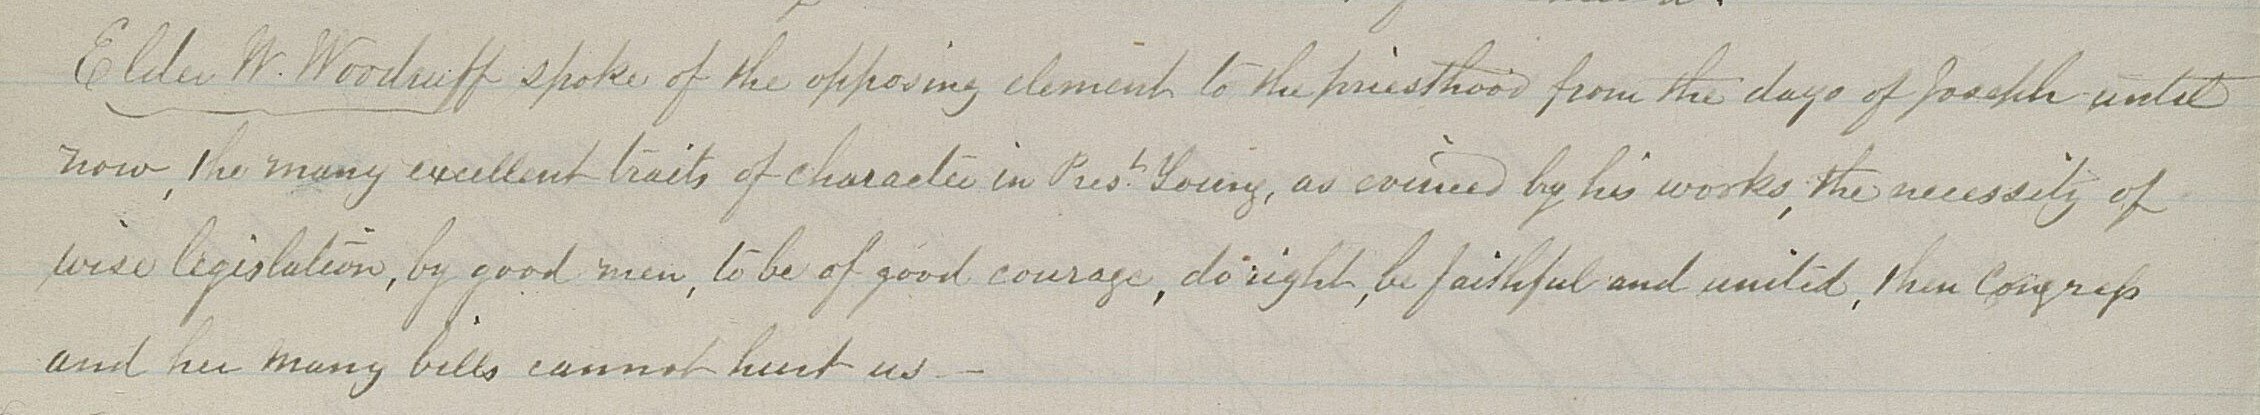 Elder W. Woodruff spoke of the opposing element to the priesthood from the days of Joseph until
now, the many excellent traits of character in Prest. Young, as evinced by his works, the necessity of
wise legislation, by good men, to be of good courage, do right, be faithful and united, then Congress
and her many bills cannot hurt us –